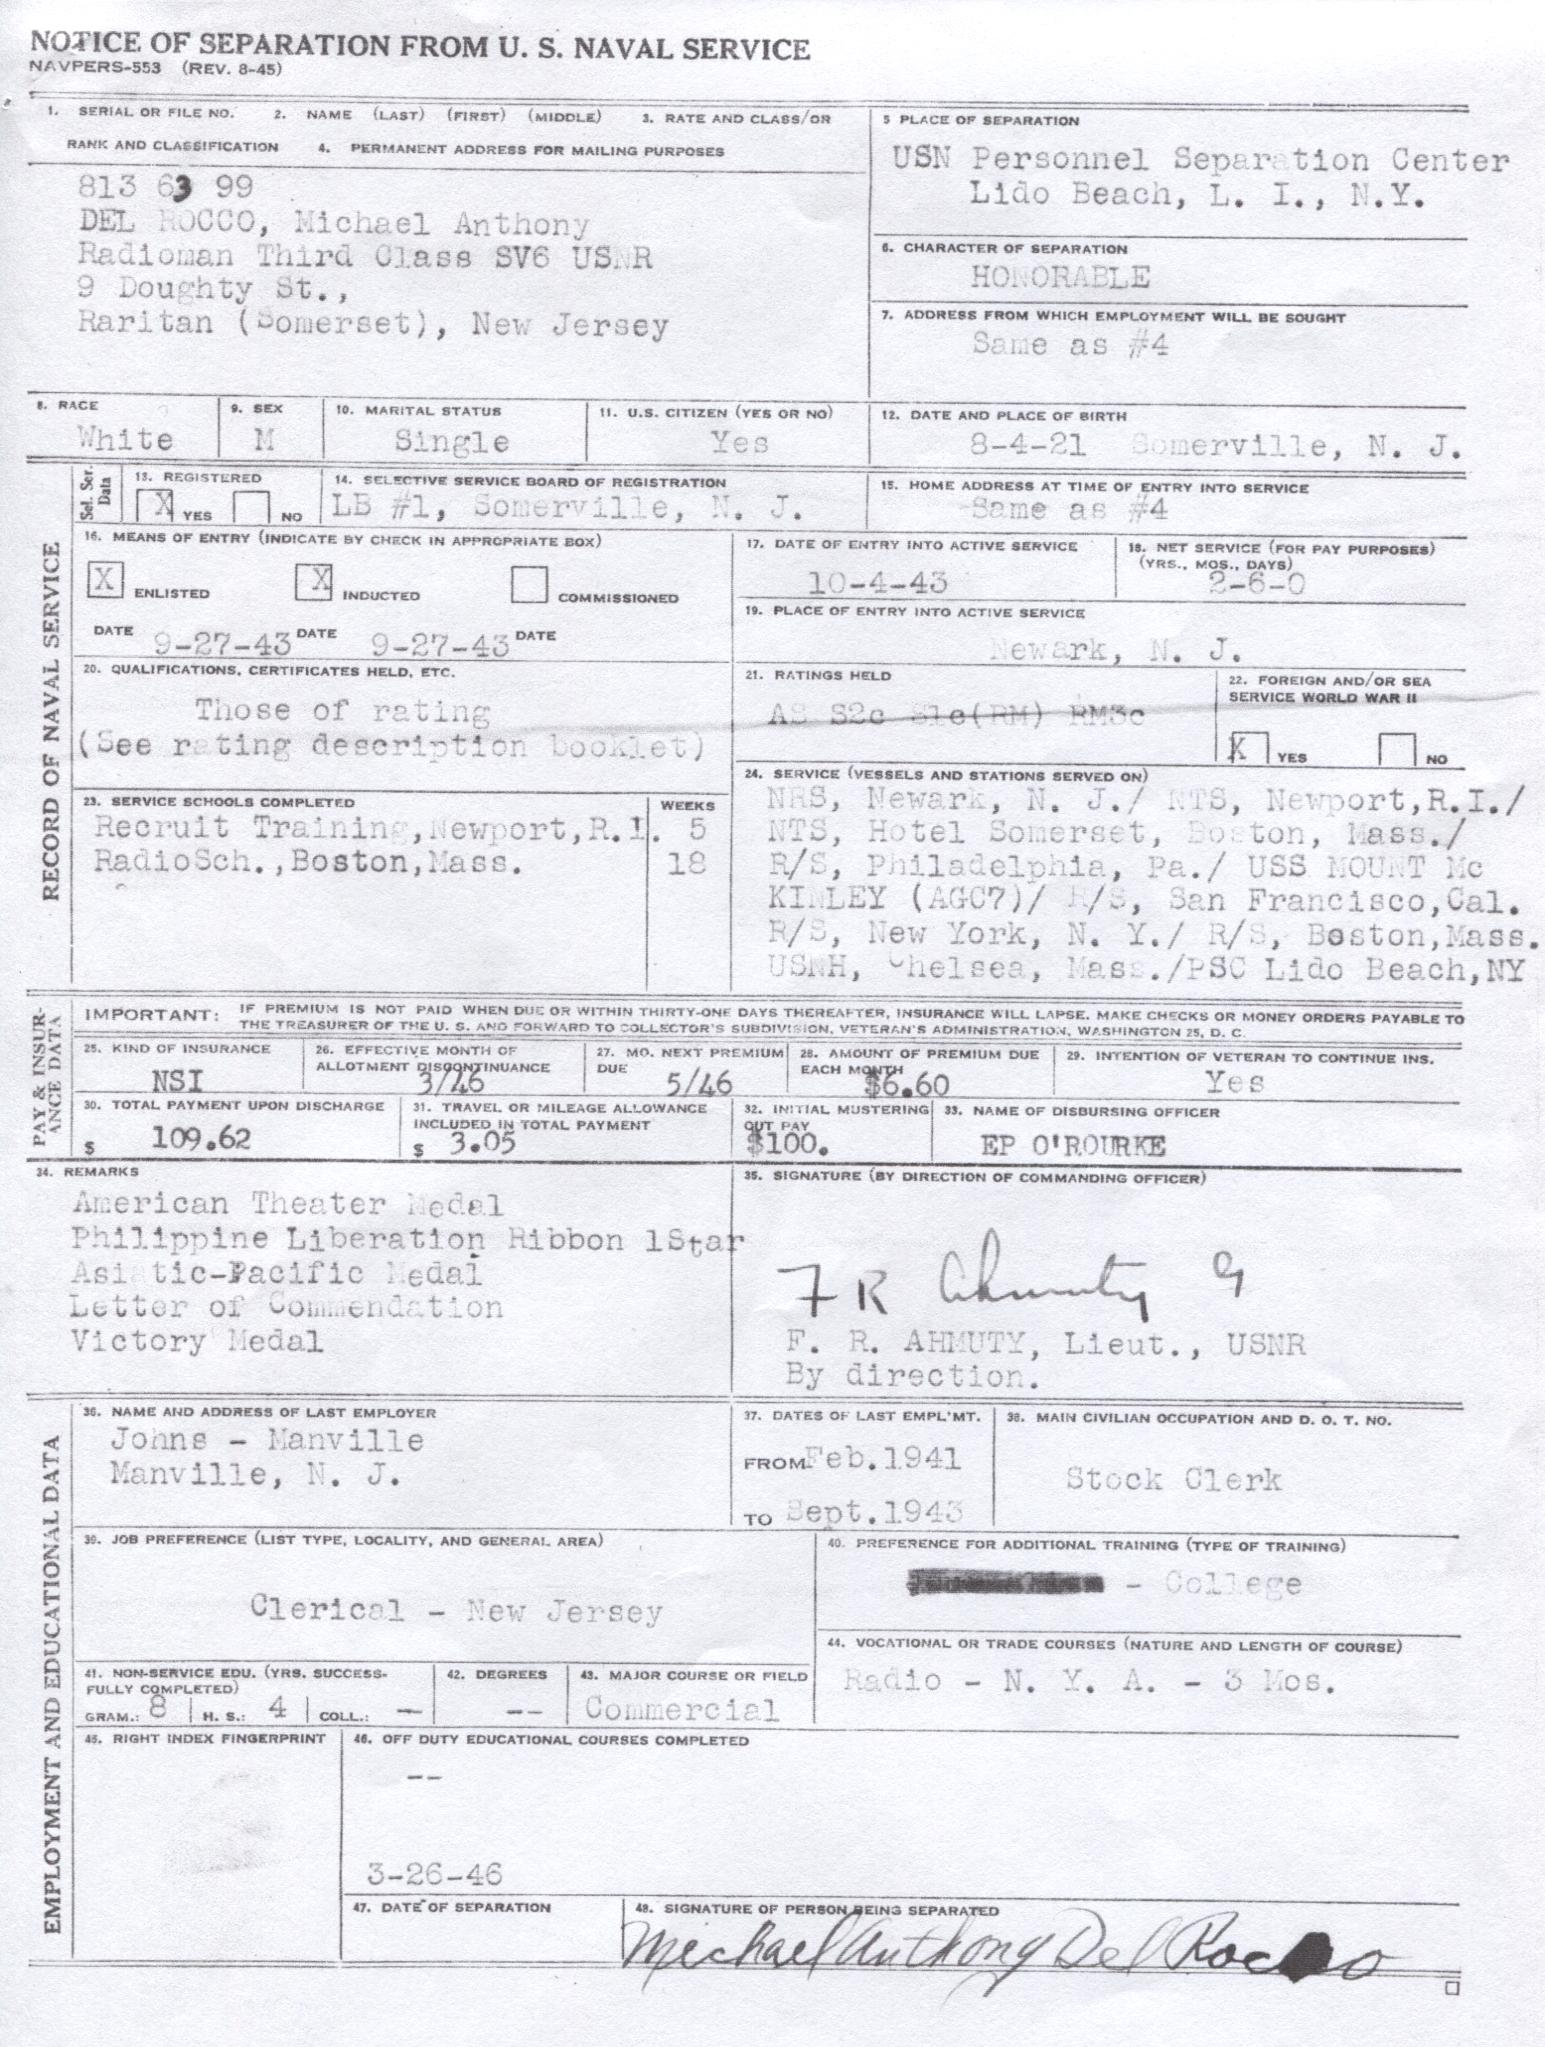 NOTICE OF SEPARATION FROM U. S. NAVAL SERVICE
NAVPERS-553 (REV. 8-45)
1. SERIAL OR FILE NO. 2. NAME (LAST) (FIRST) (MIDDLE) 3. RATE AND CLASS/OR
RANK AND CLASSIFICATION 4. PERMANENT ADDRESS FOR MAILING PURPOSES
813 63 99
DEL ROCCO, Michael Anthony
Radioman Third Class SV6 USNR
9 Doughty St.,
Raritan (Somerset), New Jersey
5 PLACE OF SEPARATION
USN Personnel Separation Center
Lido Beach, L. I., N.Y.
6. CHARACTER OF SEPARATION
HONORABLE
7. ADDRESS FROM WHICH EMPLOYMENT WILL BE SOUGHT
Same as #4
8. RACE
White
9. SEX
M
10. MARITAL STATUS
Single
11. U.S. CITIZEN (YES OR NO)
Yes
12. DATE AND PLACE OF BIRTH
8-4-21 Somerville, N. J.
RECORD OF NAVAL SERVICE
Sel. Ser.
Data
13. REGISTERED
X YES NO
14. SELECTIVE SERVICE BOARD OF REGISTRATION
LB #1, Somerville, N. J.
15. HOME ADDRESS AT TIME OF ENTRY INTO SERVICE
Same as #4
16. MEANS OF ENTRY (INDICATE BY CHECK IN APPROPRIATE BOX)
X ENLISTED X INDUCTED COMMISSIONED
DATE 9-27-43 DATE 9-27-43 DATE
17. DATE OF ENTRY INTO ACTIVE SERVICE
10-4-43
18. NET SERVICE (FOR PAY PURPOSES)
(YRS., MOS., DAYS)
2-6-0
19. PLACE OF ENTRY INTO ACTIVE SERVICE
Newark, N. J.
20. QUALIFICATIONS, CERTIFICATES HELD, ETC.
Those of rating
(See rating description booklet)
21. RATINGS HELD
AS S2c S1c(RM) RM3c
22. FOREIGN AND/OR SEA
SERVICE WORLD WAR II
X YES NO
23. SERVICE SCHOOLS COMPLETED WEEKS
Recruit Training,Newport,R.I. 5
RadioSch.,Boston,Mass. 18
24. SERVICE (VESSELS AND STATIONS SERVED ON)
NRS, Newark, N. J./ NTS, Newport,R.I./
NTS, Hotel Somerset, Boston, Mass./
R/S, Philadelphia, Pa./ USS MOUNT Mc
KINLEY (AGC7)/ R/S, San Francisco,Cal.
R/S, New York, N. Y./ R/S, Boston,Mass.
USNH, Chelsea, Mass./PSC Lido Beach,NY
PAY & INSUR-
ANCE DATA
IMPORTANT: IF PREMIUM IS NOT PAID WHEN DUE OR WITHIN THIRTY-ONE DAYS THEREAFTER, INSURANCE WILL LAPSE. MAKE CHECKS OR MONEY ORDERS PAYABLE TO
THE TREASURER OF THE U. S. AND FORWARD TO COLLECTOR'S SUBDIVISION, VETERAN'S ADMINISTRATION, WASHINGTON 25, D. C.
25. KIND OF INSURANCE
NSI
26. EFFECTIVE MONTH OF
ALLOTMENT DISCONTINUANCE
3/46
27. MO. NEXT PREMIUM
DUE
5/46
28. AMOUNT OF PREMIUM DUE
EACH MONTH
$6.60
29. INTENTION OF VETERAN TO CONTINUE INS.
Yes
30. TOTAL PAYMENT UPON DISCHARGE
$ 109.62
31. TRAVEL OR MILEAGE ALLOWANCE
INCLUDED IN TOTAL PAYMENT
$ 3.05
32. INITIAL MUSTERING
OUT PAY
$100.
33. NAME OF DISBURSING OFFICER
EP O'ROURKE
34. REMARKS
American Theater Medal
Philippine Liberation Ribbon 1Star
Asiatic-Pacific Medal
Letter of Commendation
Victory Medal
35. SIGNATURE (BY DIRECTION OF COMMANDING OFFICER)
F R Ahmuty
F. R. AHMUTY, Lieut., USNR
By direction.
EMPLOYMENT AND EDUCATIONAL DATA
36. NAME AND ADDRESS OF LAST EMPLOYER
Johns - Manville
Manville, N. J.
37. DATES OF LAST EMPL'MT.
FROM Feb.1941
TO Sept.1943
38. MAIN CIVILIAN OCCUPATION AND D. O. T. NO.
Stock Clerk
39. JOB PREFERENCE (LIST TYPE, LOCALITY, AND GENERAL AREA)
Clerical - New Jersey
40. PREFERENCE FOR ADDITIONAL TRAINING (TYPE OF TRAINING)
- College
41. NON-SERVICE EDU. (YRS. SUCCESS-
FULLY COMPLETED)
GRAM.: 8 H. S.: 4 COLL.: --
42. DEGREES
--
43. MAJOR COURSE OR FIELD
Commercial
44. VOCATIONAL OR TRADE COURSES (NATURE AND LENGTH OF COURSE)
Radio - N. Y. A. - 3 Mos.
45. RIGHT INDEX FINGERPRINT
46. OFF DUTY EDUCATIONAL COURSES COMPLETED
--
3-26-46
47. DATE OF SEPARATION
48. SIGNATURE OF PERSON BEING SEPARATED
Michael Anthony Del Rocco